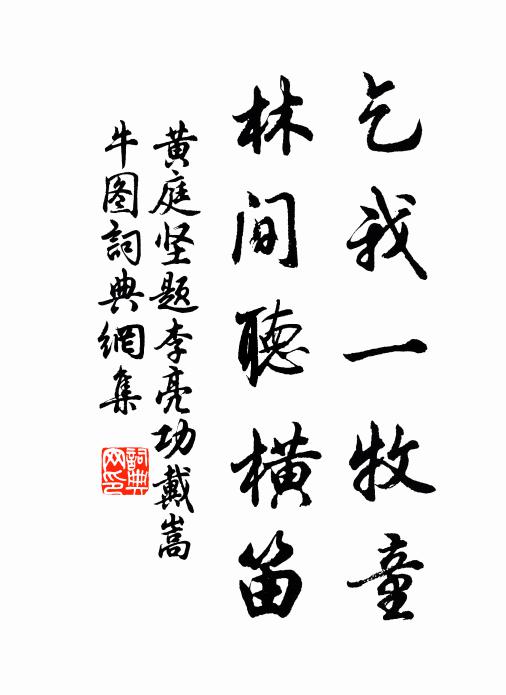 乞我一牧童
林间聽横笛
黄庭坚题李亮功戴嵩
牛图詞典網集
詞典网印